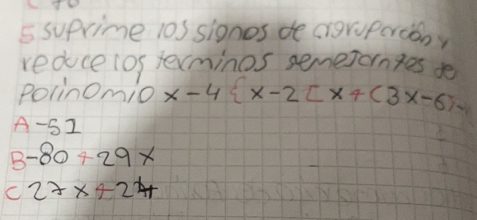 5 suprime los signos de agrupación y
reduce los terminos semejantes de
polinomio x-4{x-2[x+(3x-6)-
A -51
B -80+29x
C 27x+24